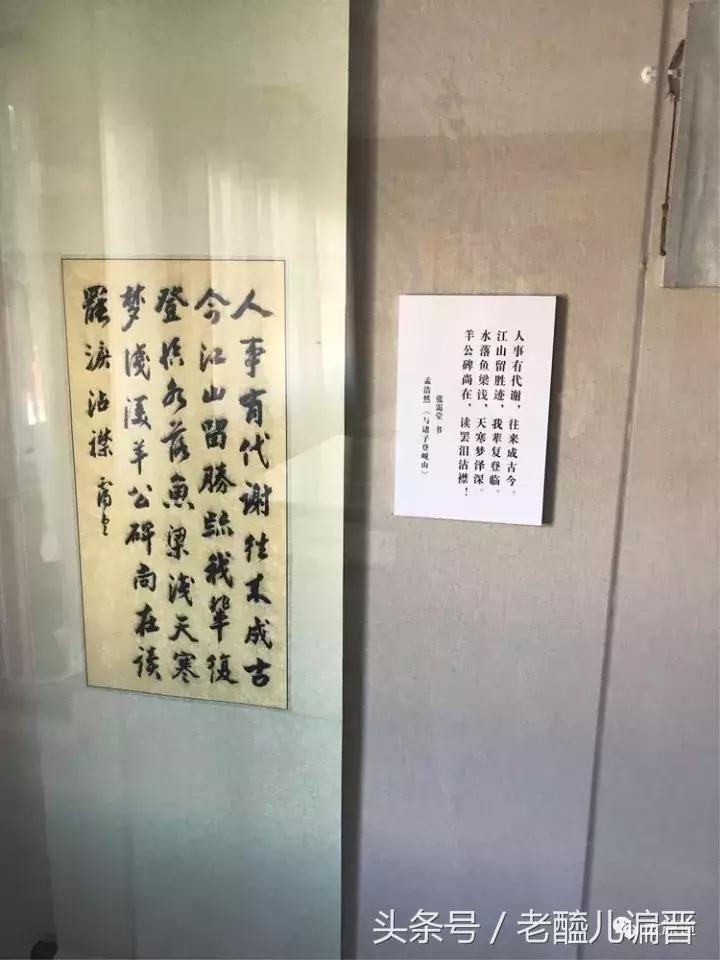 人事有代谢往来成古
今江山留勝蹟我輩復
登臨水落魚梁淺天寒
梦澤深羊公碑尚在读
罷淚沾襟
人事有代谢，往来成古今。
江山留胜迹，我辈复登临。
水落鱼梁浅，天寒梦泽深。
羊公碑尚在，读罢泪沾襟！
张霭堂 书
孟浩然《与诸子登岘山》
头条号 / 老醯儿谝晋